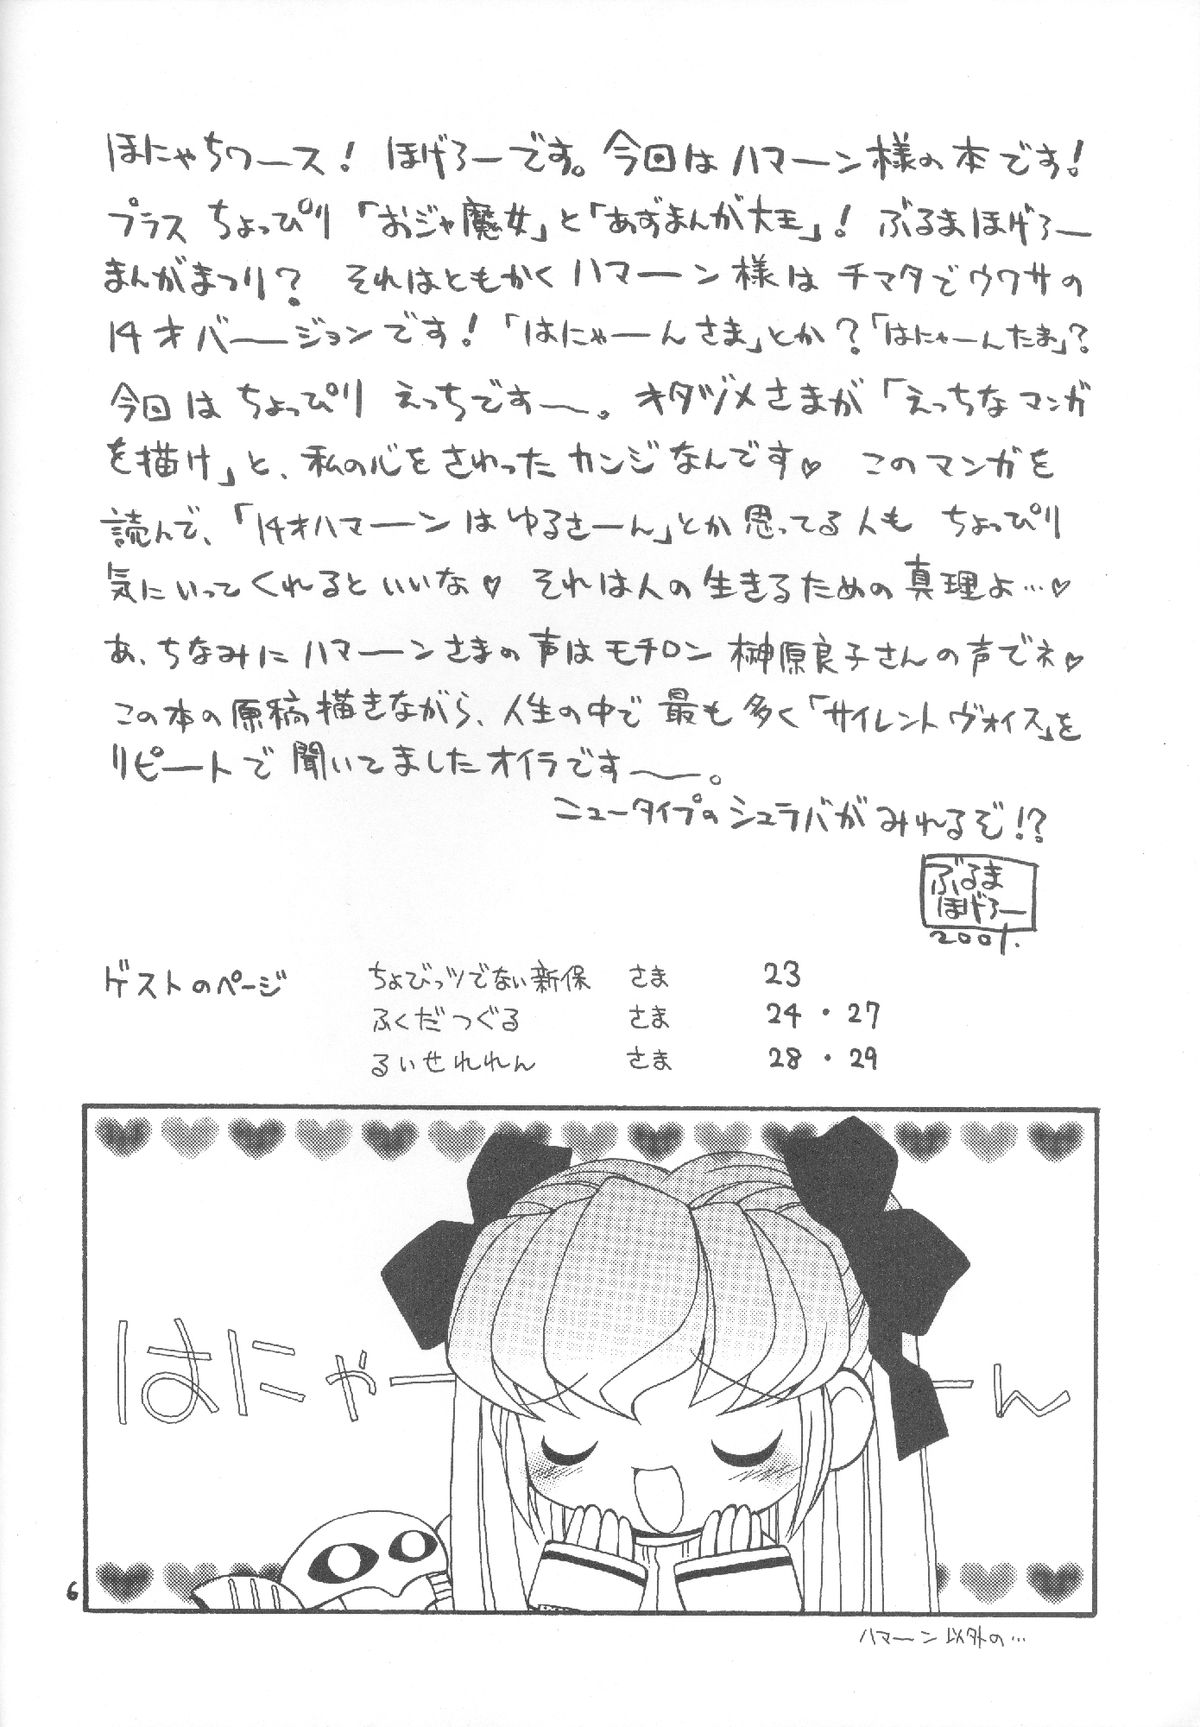 ほにゃちワース! ほげろーです。今回はハマーン様の本です!
プラス ちょっぴり「おジャ魔女」と「あずまんが大王」! ぶるまほげろー
まんがまつり? それはともかくハマーン様はチマタでウワサの
14才バージョンです!「はにゃーんさま」とか?「はにゃーんたま」?
今回はちょっぴり えっちです〜。キタヅメさまが「えっちなマンガ
を描け」と、私の心をさわったカンジなんです♡ このマンガを
読んで、「14才ハマーンはゆるさーん」とか思ってる人も ちょっぴり
気にいってくれるといいな♡ それは人の生きるための真理よ…♡
あ、ちなみにハマーンさまの声はモチロン 榊原良子さんの声でネ♡
この本の原稿描きながら、人生の中で 最も多く「サイレントヴォイス」を
リピートで聞いてましたオイラです〜。
ニュータイプのシュラバがみれるぞ!?
ぶるま
ほげろー
2001.
ゲストのページ
ちょびっツでない新保 さま 23
ふくだつぐる さま 24・27
るいせれれん さま 28・29
はにゃーーん
6
ハマーン以外の…